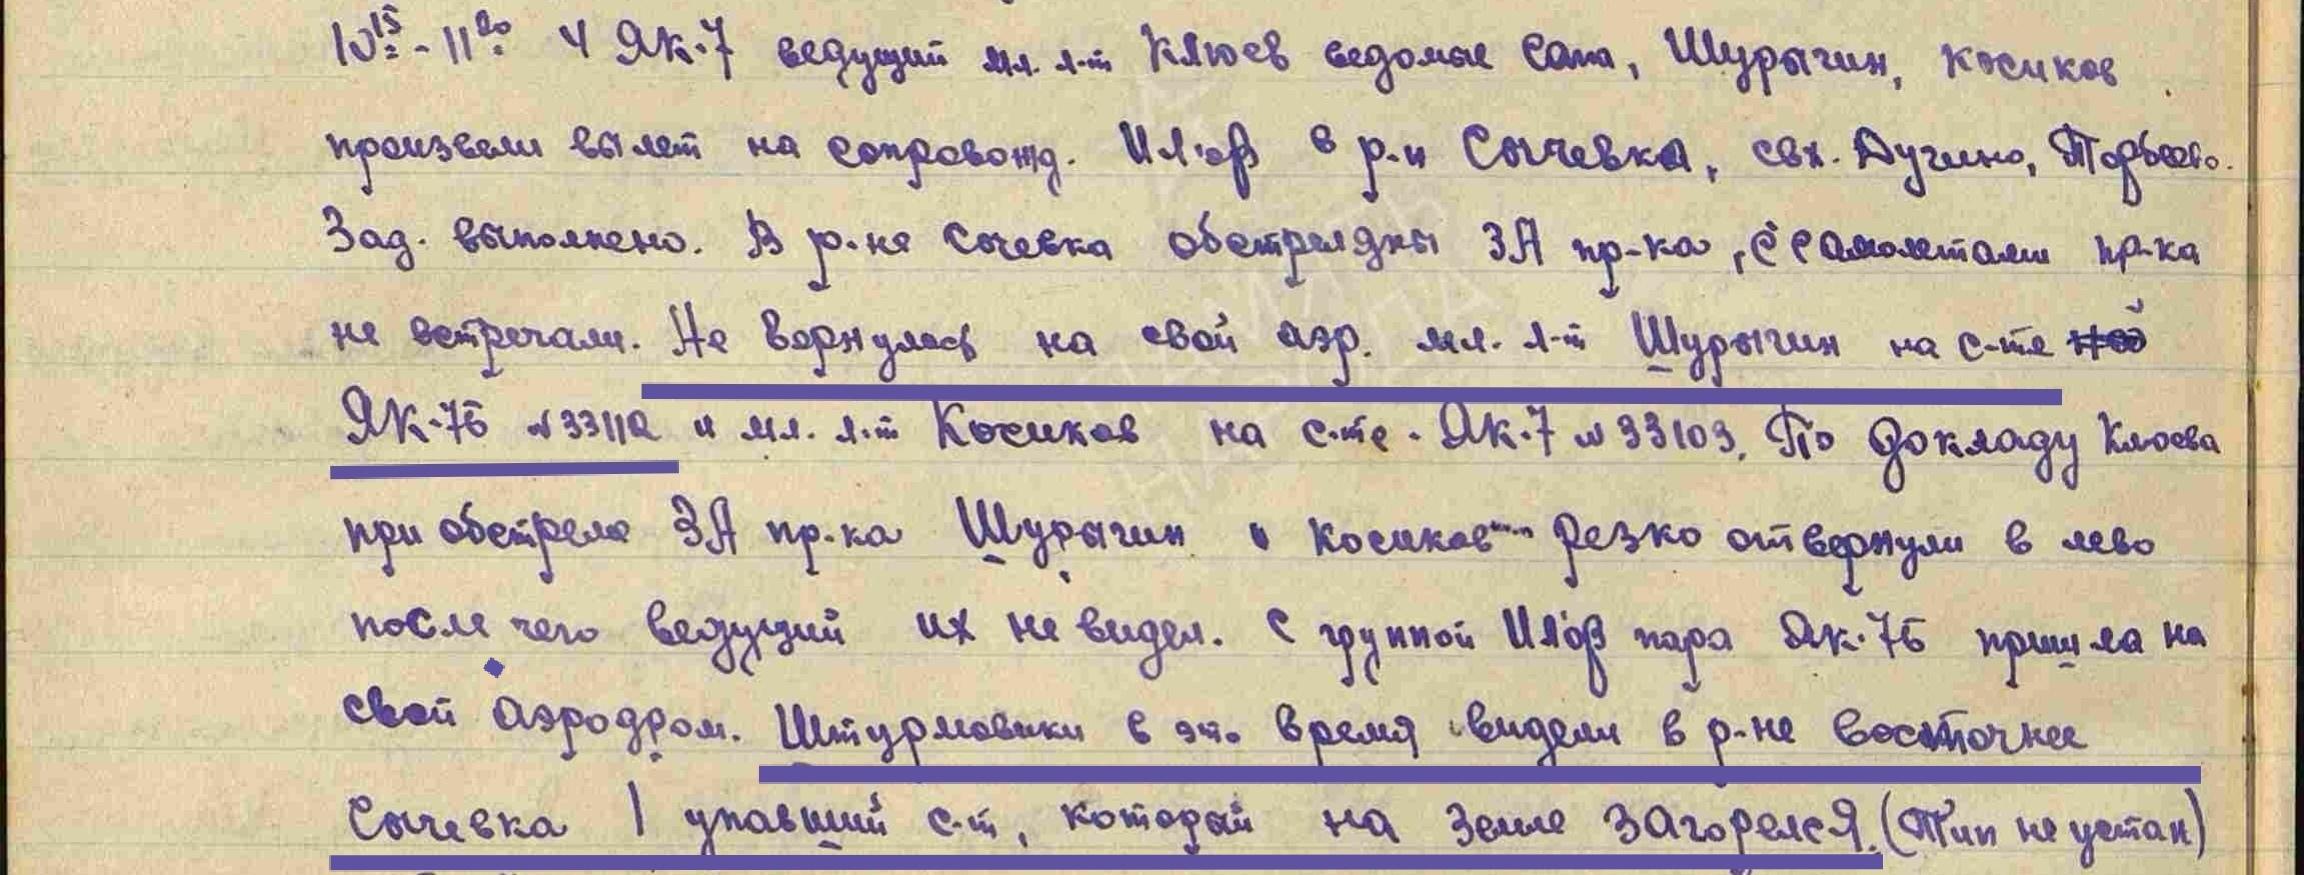 10¹⁵-11²⁰ 4 Як-7 ведущий мл. л-т Клюев ведомые Сапа, Шурыгин, Косиков
произвели вылет на сопровожд. Ил'ов в р-н Сычевка, свх. Дугино, Торбеево.
Зад. выполнено. В р-не Сычевка обстреляны ЗА пр-ка, с самолетами пр-ка
не встречали. Не вернулось на свой аэр. мл. л-т Шурыгин на с-те
Як-7б №33112 и мл. л-т Косиков на с-те Як-7 №33103. По докладу Клюева
при обстреле ЗА пр-ка Шурыгин и Косиков резко отвернули в лево
после чего ведущий их не видел. С группой Ил'ов пара Як-7б пришла на
свой аэродром. Штурмовики в это время видели в р-не восточнее
Сычевка 1 упавший с-т, который на земле загорелся. (Тип не устан)